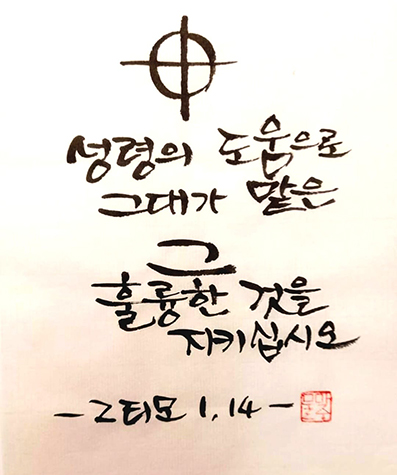 성령의 도움으로
그대가 맡은
그
훌륭한 것을
지키십시오
- 2티모 1,14 -